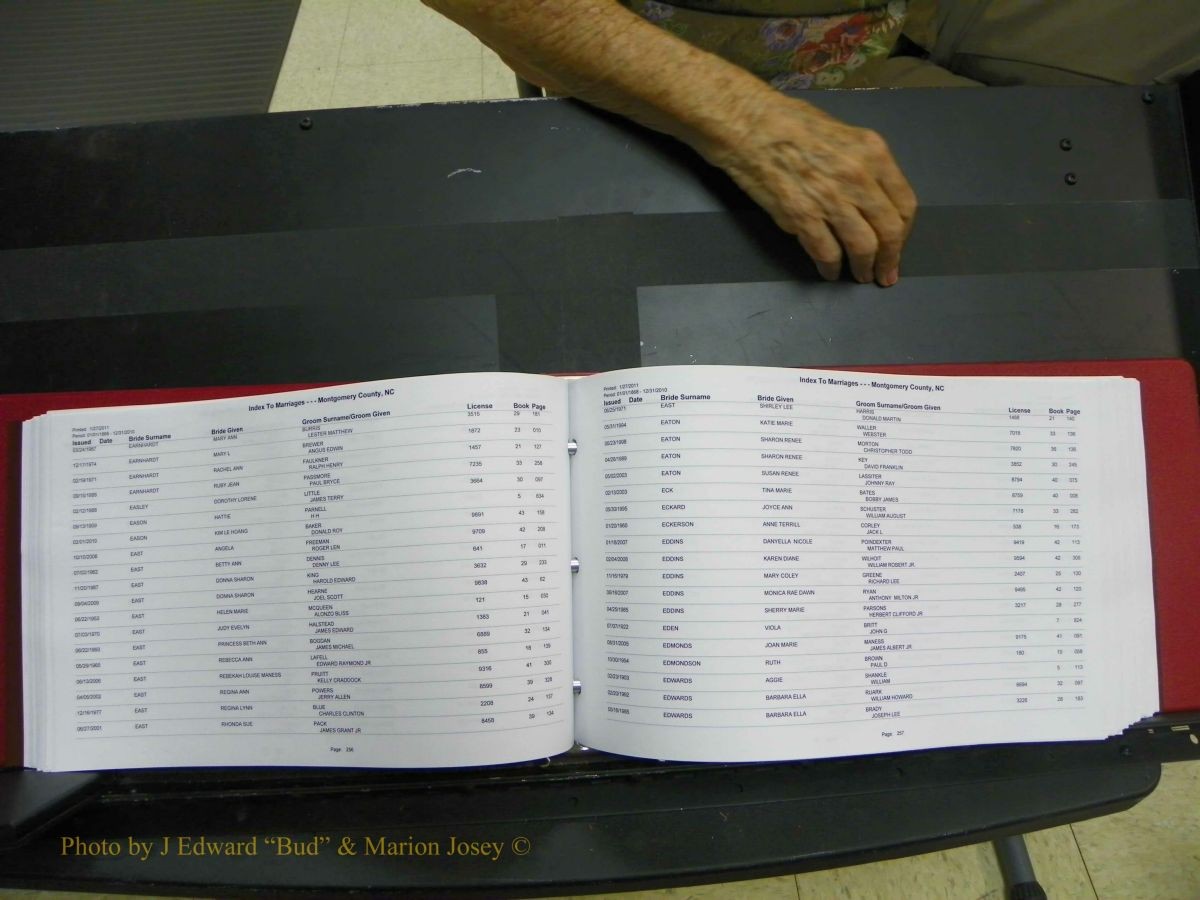 Index To Marriages - - - Montgomery County, NC
Printed: 1/27/2011
Period: 01/01/1868 - 12/31/2010
Issued Date Bride Surname Bride Given Groom Surname/Groom Given License Book Page
EARNHARDT MARY ANN BURRIS 3515 29 181
LESTER MATTHEW
12/17/1974 EARNHARDT MARY L BREWER 1872 23 010
ANGUS EDWIN
02/19/1971 EARNHARDT RACHEL ANN FAULKNER 1457 21 127
RALPH HENRY
EARNHARDT RUBY JEAN PASSMORE 7235 33 258
PAUL BRYCE
02/12/1988 EASLEY DOROTHY LORENE LITTLE 3664 30 097
JAMES TERRY
EASON HATTIE PARNELL 5 634
H H
02/01/2010 EASON KIM LE HOANG BAKER 9891 43 158
DONALD ROY
10/10/2008 EAST ANGELA FREEMAN 9709 42 208
ROGER LEN
07/02/1962 EAST BETTY ANN DENNIS 641 17 011
DENNY LEE
11/20/1987 EAST DONNA SHARON KING 3632 29 233
HAROLD EDWARD
09/04/2009 EAST DONNA SHARON HEARNE 9838 43 62
JOEL SCOTT
EAST HELEN MARIE MCQUEEN 121 15 030
ALONZO BLISS
07/03/1970 EAST JUDY EVELYN HALSTEAD 1363 21 041
JAMES EDWARD
EAST PRINCESS BETH ANN BOGDAN 6889 32 134
JAMES MICHAEL
05/29/1965 EAST REBECCA ANN LAFELL 855 18 139
EDWARD RAYMOND JR
EAST REBEKAH LOUISE MANESS PRUITT 9316 41 300
KELLY CRADDOCK
04/05/2002 EAST REGINA ANN POWERS 8599 39 328
JERRY ALLEN
12/16/1977 EAST REGINA LYNN BLUE 2208 24 137
CHARLES CLINTON
06/27/2001 EAST RHONDA SUE PACK 8458 39 134
JAMES GRANT JR
Page: 256
Index To Marriages - - - Montgomery County, NC
Printed: 1/27/2011
Period: 01/01/1868 - 12/31/2010
Issued Date Bride Surname Bride Given Groom Surname/Groom Given License Book Page
06/25/1971 EAST SHIRLEY LEE HARRIS 1498 21 140
DONALD MARTIN
05/31/1994 EATON KATIE MARIE WALLER 7019 33 136
WEBSTER
EATON SHARON RENEE MORTON 7820 36 135
CHRISTOPHER TODD
04/20/1989 EATON SHARON RENEE KEY 3852 30 245
DAVID FRANKLIN
05/02/2003 EATON SUSAN RENEE LASSITER 8794 40 075
JOHNNY RAY
02/13/2003 ECK TINA MARIE BATES 8759 40 008
BOBBY JAMES
05/30/1995 ECKARD JOYCE ANN SCHUSTER 7178 33 262
WILLIAM AUGUST
01/20/1960 ECKERSON ANNE TERRILL CORLEY 538 16 173
JACK L
01/18/2007 EDDINS DANYELLA NICOLE POINDEXTER 9419 42 113
MATTHEW PAUL
02/04/2008 EDDINS KAREN DIANE WILHOIT 9594 42 306
WILLIAM ROBERT JR
11/16/1979 EDDINS MARY COLEY GREENE 2407 25 130
RICHARD LEE
EDDINS MONICA RAE DAWN RYAN 9495 42 120
ANTHONY MILTON JR
04/25/1985 EDDINS SHERRY MARIE PARSONS 3217 28 277
HERBERT CLIFFORD JR
07/07/1922 EDEN VIOLA BRITT 7 824
JOHN G
08/31/2005 EDMONDS JOAN MARIE MANESS 9175 41 091
JAMES ALBERT JR
10/30/1954 EDMONDSON RUTH BROWN 180 15 058
PAUL D
02/23/1903 EDWARDS AGGIE SHANKLE 5 113
WILLIAM
EDWARDS BARBARA ELLA RUARK 6694 32 097
WILLIAM HOWARD
EDWARDS BARBARA ELLA BRADY 3225 28 183
JOSEPH LEE
Page: 257
Photo by J Edward “Bud” & Marion Josey ©